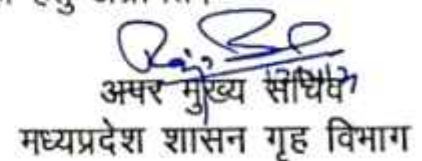 हेतु
अपर मुख्य सचिव
मध्यप्रदेश शासन गृह विभाग